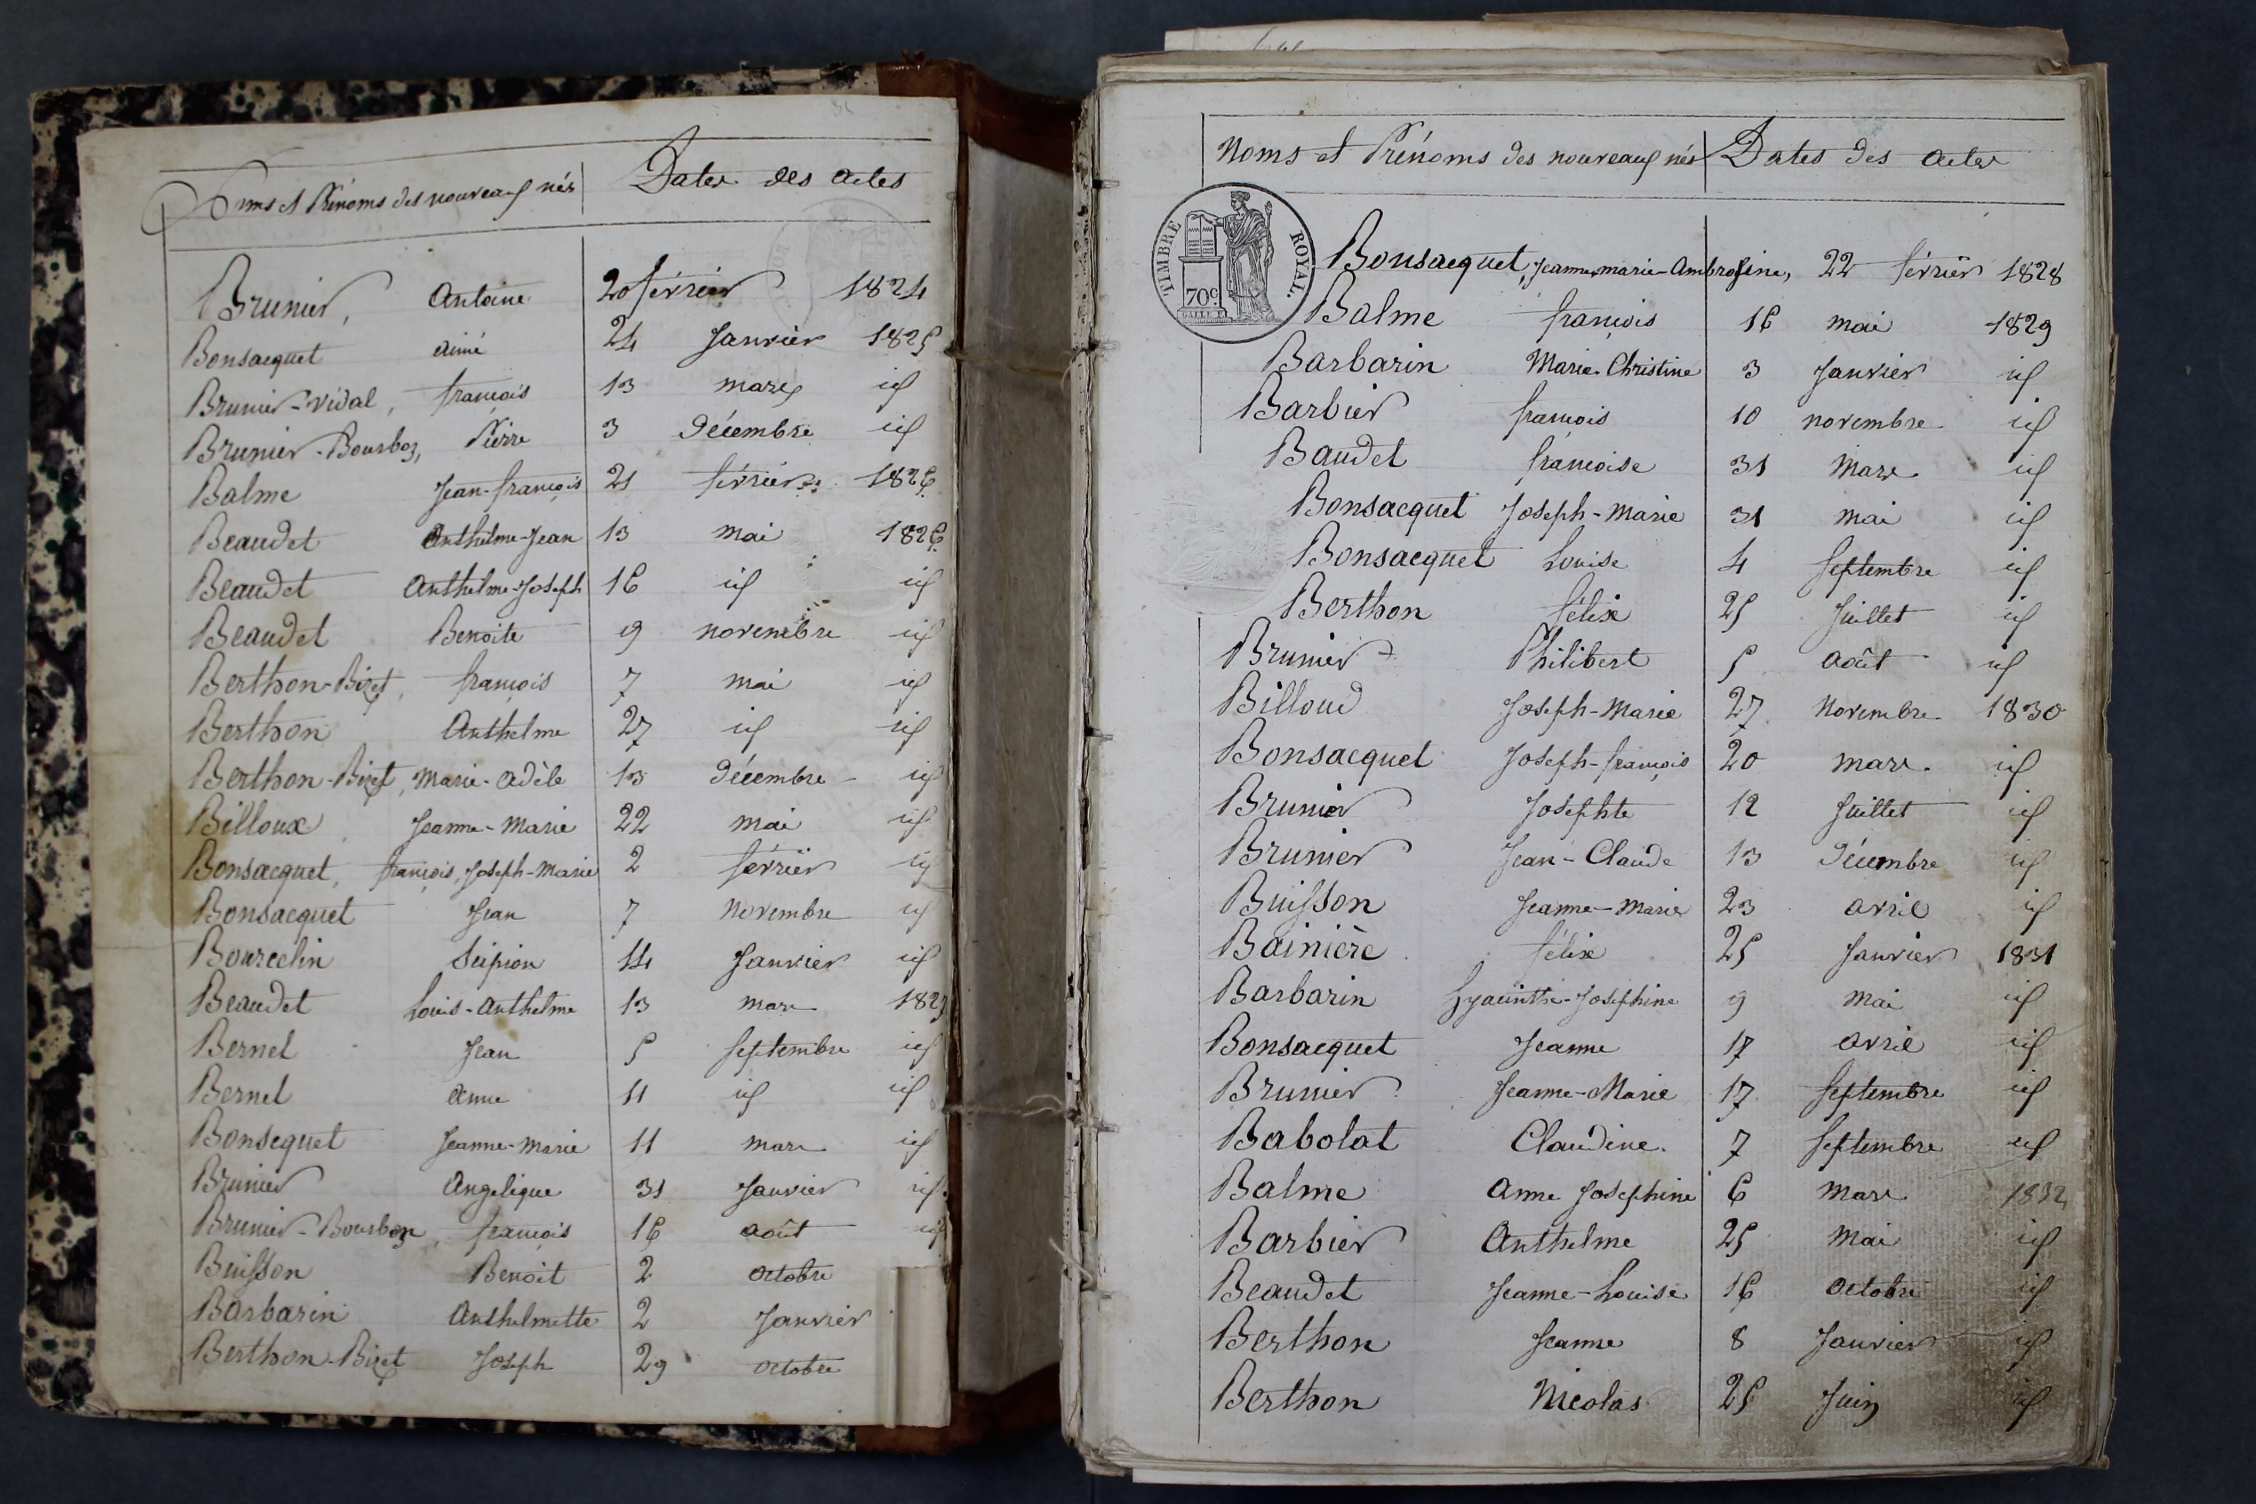 Noms et Prénoms des nouveaux nés Dates des actes
Brunier, Antoine 20 février 1824
Bonsacquet aimé 24 Janvier 1825
Brunier-Vidal, françois 13 mars id
Brunier-Bourbon, Pierre 3 décembre id
Balme Jean-françois 21 février 1826
Beaudet Anthelme-Jean 13 mai 1826
Beaudet Anthelme-Joseph 16 id id
Beaudet Benoite 9 novembre id
Berthon-Bizet, françois 7 mai id
Berthon Anthelme 27 id id
Berthon-Bizet, Marie-Adèle 13 décembre id
Billoux Jeanne-Marie 22 mai id
Bonsacquet, françois, Joseph-Marie 2 février id
Bonsacquet Jean 7 Novembre id
Bourcelin Scipion 14 Janvier id
Beaudet Louis-Anthelme 13 mars
Bernel Jean 5 Septembre id
Bernel Anne 11 id id
Bonsequet Jeanne-Marie 11 mars id
Brunier Angelique 31 Janvier id
Brunier-Bourbon, françois 16 août id
Buisson Benoit 2 octobre
Barbarin Anthelmette 2 Janvier
Berthon-Bizet Joseph 29 octobre
Noms et Prénoms des nouveaux nés Dates des actes
TIMBRE ROYAL.
70c.
Bonsacquet, Jeanne, marie-Ambrosine, 22 février 1828
Balme françois 16 mai 1829
Barbarin Marie-Christine 3 Janvier id
Barbier françois 10 novembre id
Baudet françoise 31 Mars id
Bonsacquet Joseph-Marie 31 mai id
Bonsacquet Louise 4 Septembre id
Berthon félix 25 Juillet id
Brunier Philibert 5 août id
Billoud Joseph-Marie 27 Novembre 1830
Bonsacquet Joseph-françois 20 mars id
Brunier Josephte 12 Juillet id
Brunier Jean-Claude 13 Décembre id
Buisson Jeanne-Marie 23 avril id
Bainière félix 25 Janvier 1831
Barbarin hyacinthe-Josephine 9 Mai id
Bonsacquet Jeanne 17 avril id
Brunier Jeanne-Marie 17 Septembre id
Babolat Claudine 7 Septembre id
Balme Anne Josephine 6 Mars 1832
Barbier Anthelme 25 Mai id
Beaudet Jeanne-Louise 16 Octobre id
Berthon Jeanne 8 Janvier id
Berthon Nicolas 25 Juin id